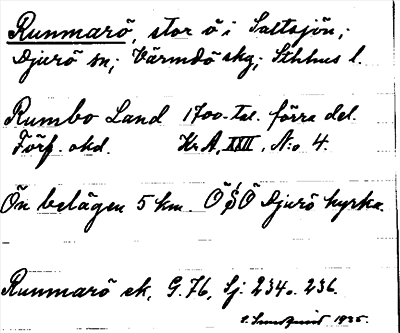 Runmarö, stor ö i Saltsjön,;
Djurö sn; Värmdö skg; Sthlms l.
Rumbo Land 1700-tal. förra del.
Förf. okd. Kr A, XXII, N:o 4.
Ön belägen 5 km. ÖSÖ Djurö kyrka.
Runmarö ek, G. 76, Sj. 234 o. 236.
1935.